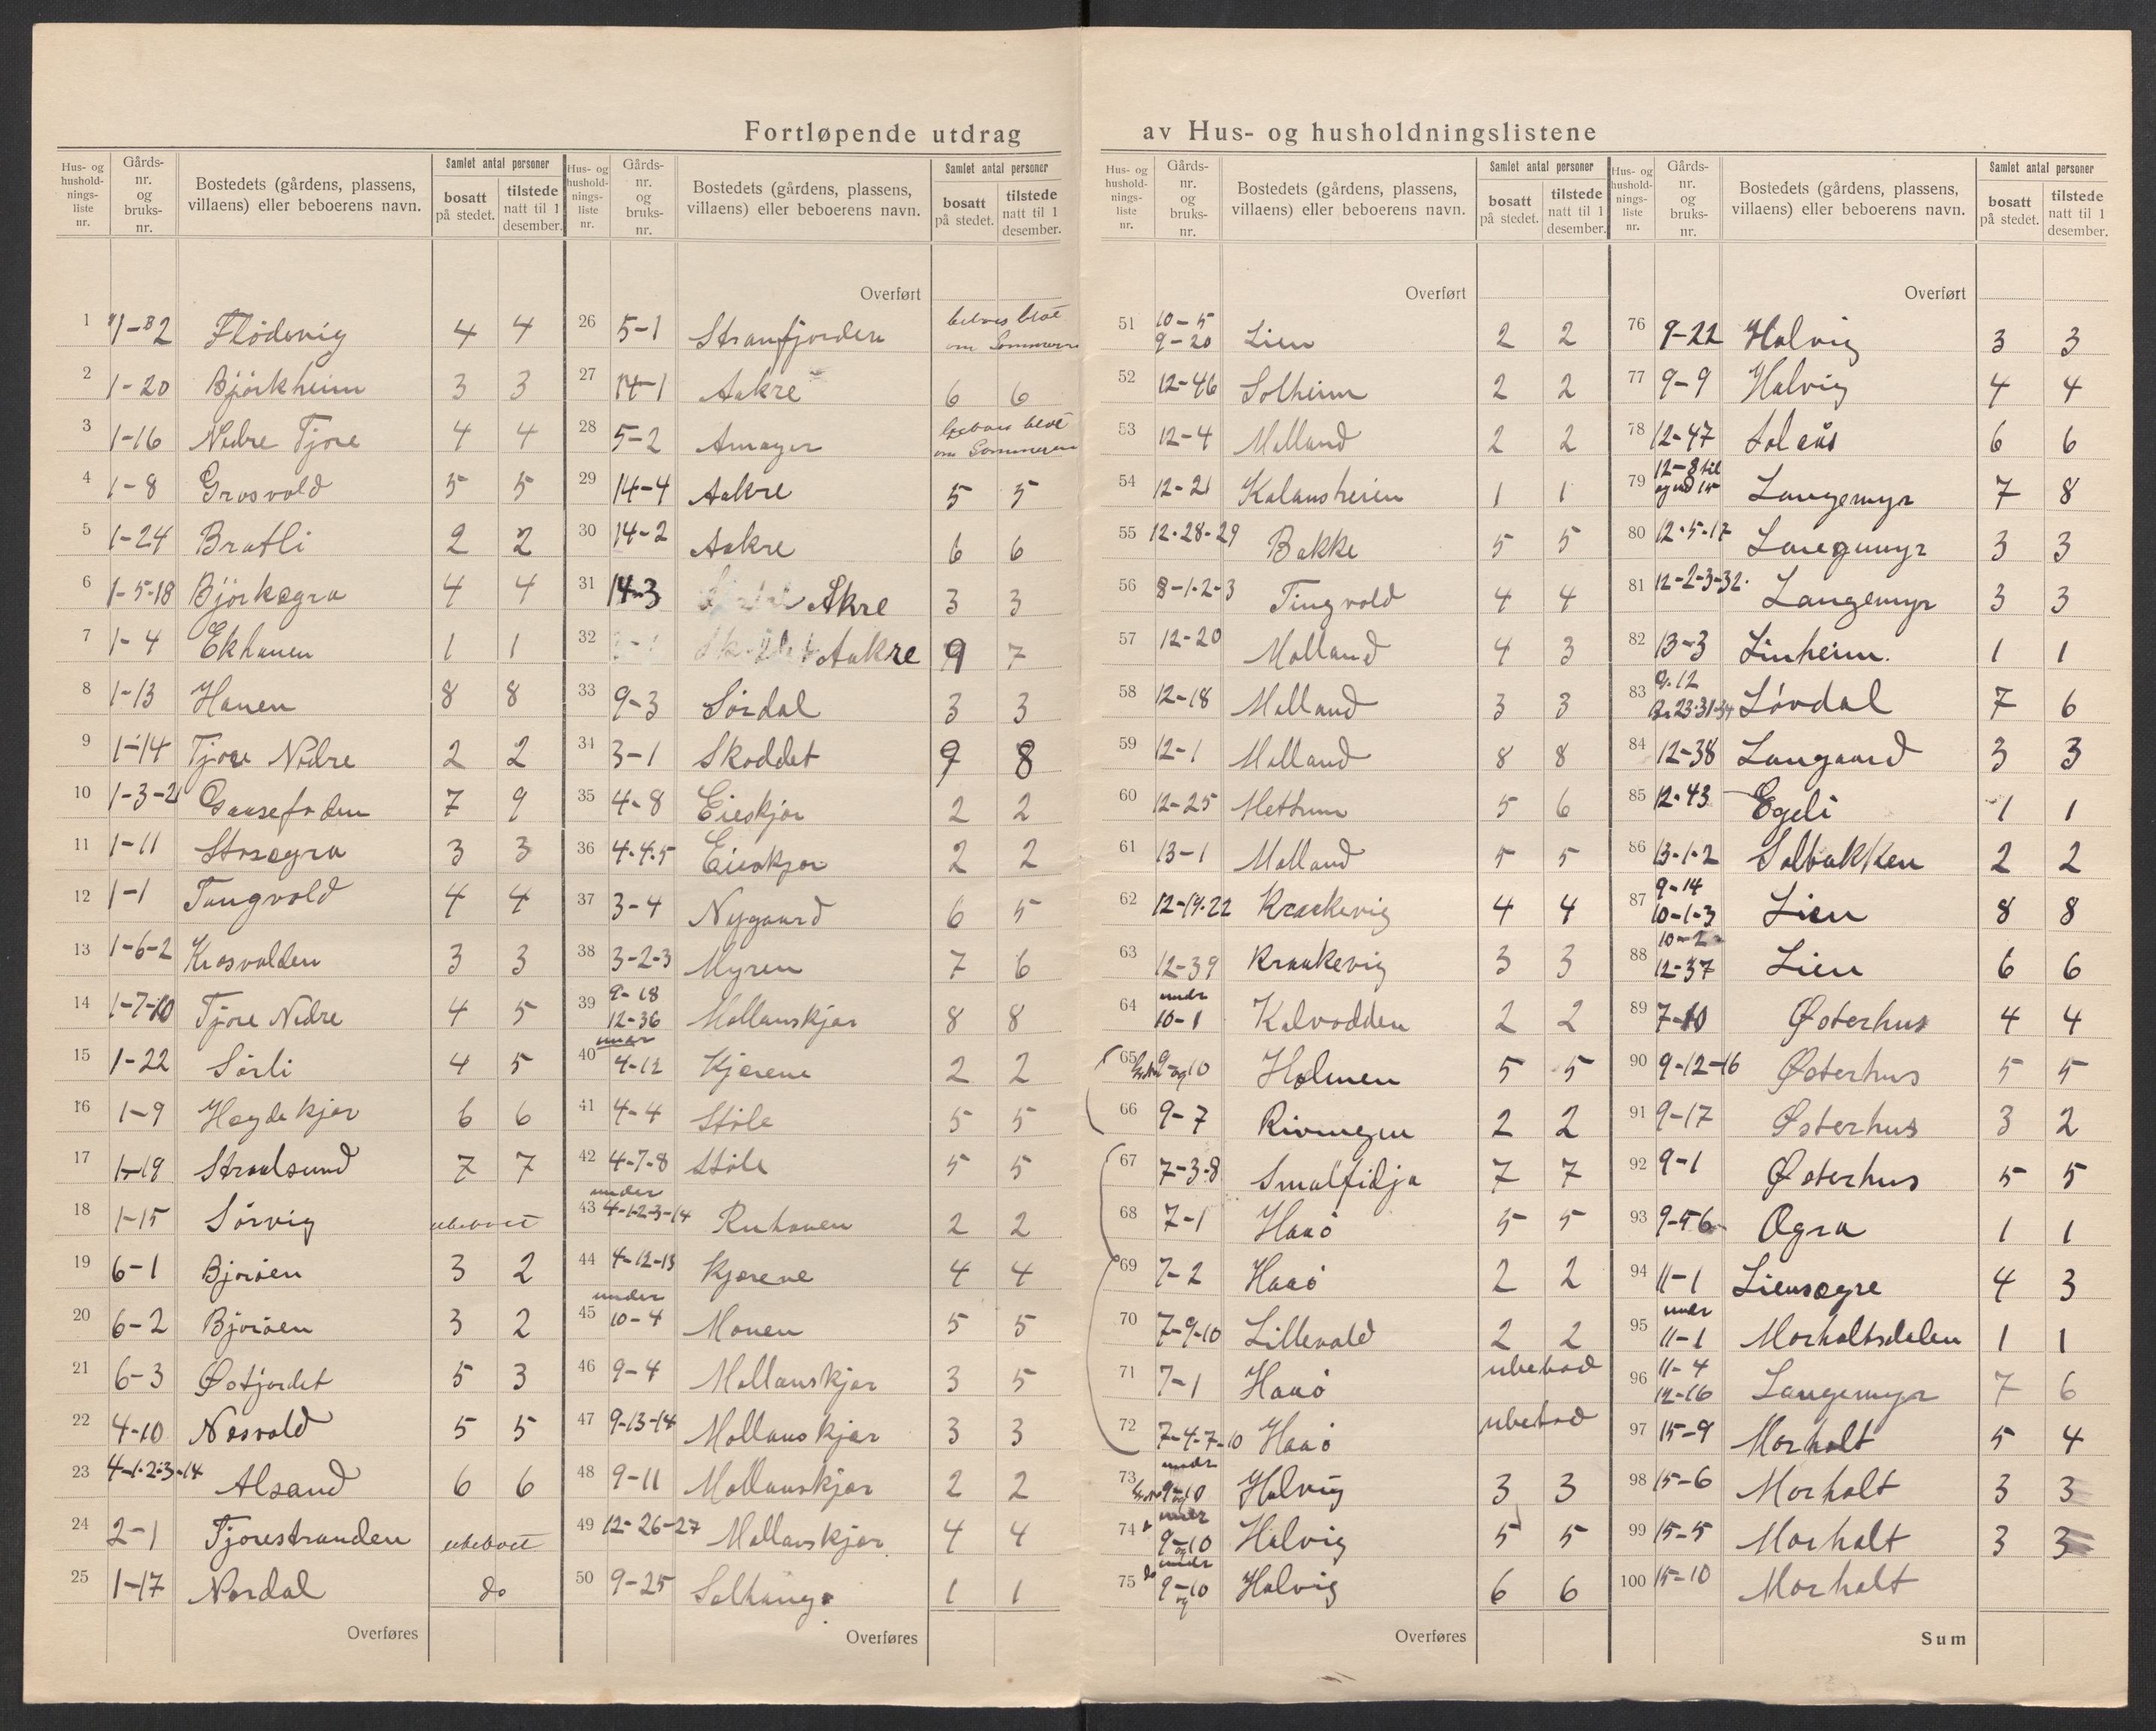 Fortløpende utdrag av Hus- og husholdningslistene
Hus- og hushold-nings-liste nr. Gårds-nr. og bruks-nr. Bostedets (gårdens, plassens, villaens) eller beboerens navn. Samlet antal personer bosatt på stedet. tilstede natt til 1 desember.
1 1-82 Flödevig 4 4
2 1-20 Björkheim 3 3
3 1-16 Nedre Tjore 4 4
4 1-8 Grosvold 5 5
5 1-24 Bratli 2 2
6 1-5-18 Björkægra 4 4
7 1-4 Ekhauen 1 1
8 1-13 Hauen 8 8
9 1-14 Tjore Nedre 2 2
10 1-3-21 Gaasefoden 7 9
11 1-11 Storægra 3 3
12 1-1 Tangvold 4 4
13 1-6-2 Krosvolden 3 3
14 1-7-10 Tjore Nedre 4 5
15 1-22 Sørli 4 5
16 1-9 Høgdekjær 6 6
17 1-19 Straalsund 7 7
18 1-15 Sørvig ubeboet
19 6-1 Bjorøen 3 2
20 6-2 Bjorøen 3 2
21 6-3 Østjordet 5 3
22 4-10 Nesvold 5 5
23 4-1-2-3-14 Alsand 6 6
24 2-1 Tjorestranden ubeboet
25 1-17 Nordal do
Overføres
Hus- og hushold-nings-liste nr. Gårds-nr. og bruks-nr. Bostedets (gårdens, plassens, villaens) eller beboerens navn. Samlet antal personer bosatt på stedet. tilstede natt til 1 desember.
Overført
26 5-1 Stranfjorden om Sommeren
27 14-1 Aakre 6 6
28 5-2 Amager om Sommeren
29 14-4 Aakre 5 5
30 14-2 Aakre 6 6
31 14-3 Akre 3 3
32 Aakre 9 7
33 9-3 Sördal 3 3
34 3-1 Skoddet 9 8
35 4-8 Eieskjær 2 2
36 4-4-5 Eieskjær 2 2
37 3-4 Nygaard 6 5
38 3-2-3 Myren 7 6
39 9-18 12-36 Mollanskjær 8 8
40 under 4-12 Kjærene 2 2
41 4-4 Støle 5 5
42 4-7-8 Støle 5 5
43 under 4-1-2-3-14 Ruhauen 2 2
44 4-12-13 Kjærene 4 4
45 under 10-4 Monen 5 5
46 9-4 Mollanskjær 3 5
47 9-13-14 Mollanskjær 3 3
48 9-11 Mollanskjær 2 2
49 12-26-27 Mollanskjær 4 4
50 9-25 Solhaug 1 1
Overføres
Hus- og hushold-nings-liste nr. Gårds-nr. og bruks-nr. Bostedets (gårdens, plassens, villaens) eller beboerens navn. Samlet antal personer bosatt på stedet. tilstede natt til 1 desember.
Overført
51 10-5 9-20 Lien 2 2
52 12-46 Solheim 2 2
53 12-4 Molland 2 2
54 12-21 Kalausheien 1 1
55 12-28-29 Bakke 5 5
56 8-1-2-3 Tingvold 4 4
57 12-20 Molland 4 3
58 12-18 Molland 3 3
59 12-1 Molland 8 8
60 12-25 5 6
61 13-1 Molland 5 5
62 12-19-22 Kraakevig 4 4
63 12-39 Kraakevig 3 3
64 under 10-1 Kalvodden 2 2
65 9-10 og Holmen 5 5
66 9-7 Rivingen 2 2
67 7-3-8 Smalfidja 7 7
68 7-1 Haaö 5 5
69 7-2 Haaö 2 2
70 7-9-10 Lillevold 2 2
71 7-1 Haaö ubebod
72 7-4-7-10 Haaö ubebod
73 under 9-10 og Halvig 3 3
74 under 9-10 og Halvig 5 5
75 do under 9-10 og Halvig 6 6
Overføres
Hus- og hushold-nings-liste nr. Gårds-nr. og bruks-nr. Bostedets (gårdens, plassens, villaens) eller beboerens navn. Samlet antal personer bosatt på stedet. tilstede natt til 1 desember.
Overført
76 9-22 Halvig 3 3
77 9-9 Halvig 4 4
78 12-47 Soleås 6 6
79 12-8 til Langemyr 7 8
80 12-5-17 Langemyr 3 3
81 12-2-3-32 Langemyr 3 3
82 13-3 Linheim 1 1
83 9.12 Br 23-31-34 Lövdal 7 6
84 12-38 Langaard 3 3
85 12-43 Egeli 1 1
86 13-1-2 Solbakken 2 2
87 9-14 10-1-3 Lien 8 8
88 10-2 12-37 Lien 6 6
89 7-10 Østerhus 4 4
90 9-12-16 Østerhus 5 5
91 9-17 Østerhus 3 2
92 9-1 Østerhus 5 5
93 9-5-6 Ogra 1 1
94 11-1 Liensægre 4 3
95 under 11-1 Morholtsdalen 1 1
96 11-4 12-16 Langemyr 7 6
97 15-9 Morholt 5 4
98 15-6 Morholt 3 3
99 15-5 Morholt 3 3
100 15-10 Morholt
Sum